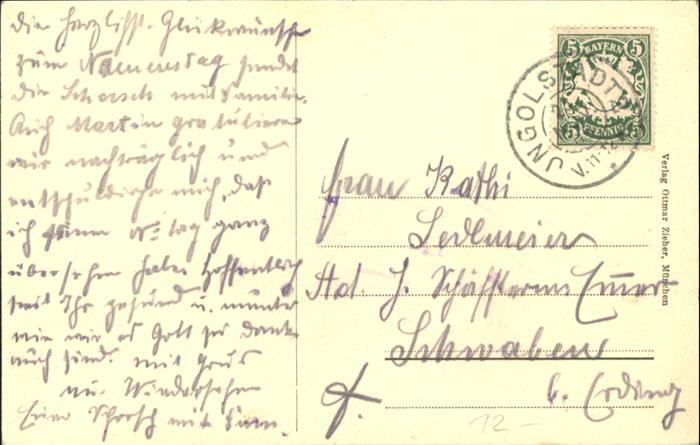 die herzlichst. Glückwünsche
zum Namenstag sendet
die Schorsch mit Familie.
Auch Martin gratulieren
wir nachträglich und
entschuldige mich, daß
ich seinen N.tag ganz
übersehen habe. Hoffentlich
seit Ihr gesund u. munter
wie wir es Gott sei dank
auch sind. Mit Gruß
u. Wiedersehen
Euer Schorsch mit Fam.
Frau Kathi
Sedlmeier
Ad. J.
Schwaben
b. Erding
12 -
5 BAYERN 5
5 PFENNIG 5
INGOLSTADT
V. 11-12
Verlag Ottmar Zieher, München